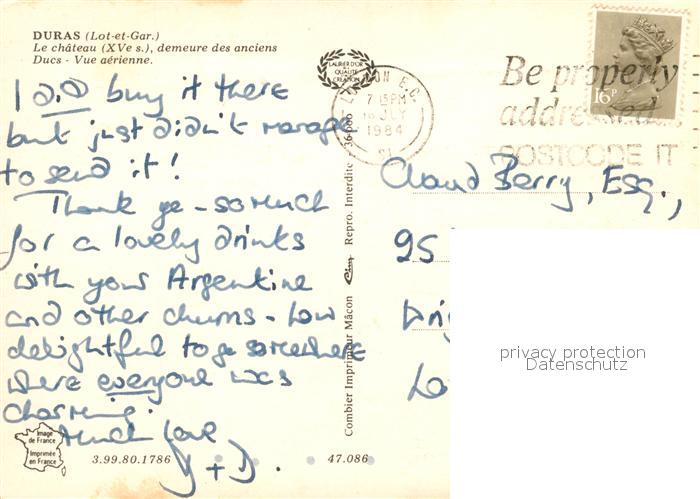 DURAS (Lot-et-Gar.)
Le château (XVe s.), demeure des anciens
Ducs - Vue aérienne.
I did buy it there
but just didn't manage
to send it!
Thank ye - so much
for a lovely drinks
with your Argentine
and other chums - how
delightful to go somewhere
where everyone was
charming.
Much love
J + D.
Image
de France
Imprimée
en France
3.99.80.1786
47.086
Combier Imprimeur Mâcon
Repro. Interdite
LAURIER D'OR
QUALITÉ
CRÉATION
LONDON E.C.
7 15 PM
JLY
1984
Be properly
addressed
POSTCODE IT
16P
Claud Berry, Esq.,
95
Lo
privacy protection
Datenschutz